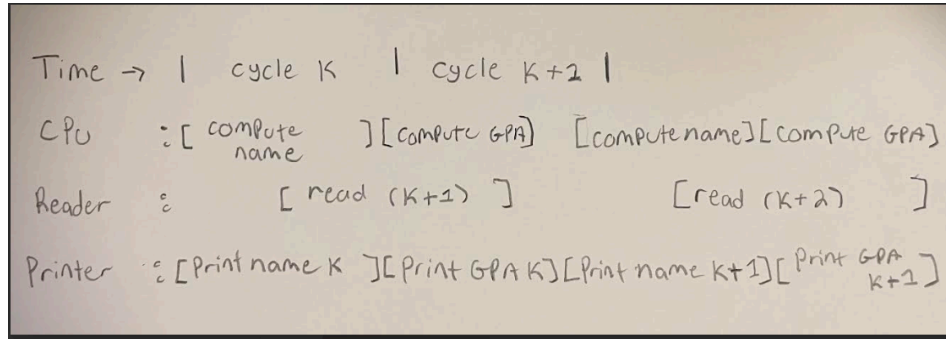 Time → | cycle K | cycle K+2 |
CPU : [ compute name ] [compute GPA] [compute name] [compute GPA]
Reader : [ read (K+1) ] [read (K+2) ]
Printer : [Print name K ] [Print GPA K] [Print name K+1] [Print GPA K+1]